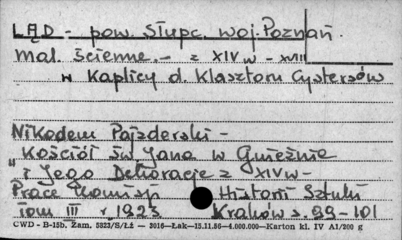 LĄD - pow. Słupc. woj. Poznań.
mal. ścienne. - z XIV w - XVIII
w Kaplicy d. Klasztoru Cystersów
Nikodem Pajzderski -
"Kościół św. Jana w Gnieźnie
i Jego Dekoracje z XIV w -
Prace Komisji Historii Sztuki
Tom III r 1923 Kraków s. 99-101
CWD - B-15b. Zam. 5823/S/Łź - 2016-Łak-15.11.56-4.000.000-Karton kl. IV A1/200 g